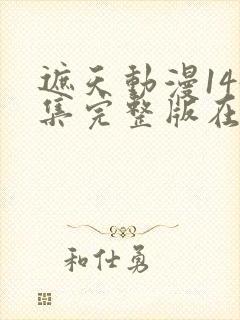 遮天動漫14
集完整版在
和仕勇